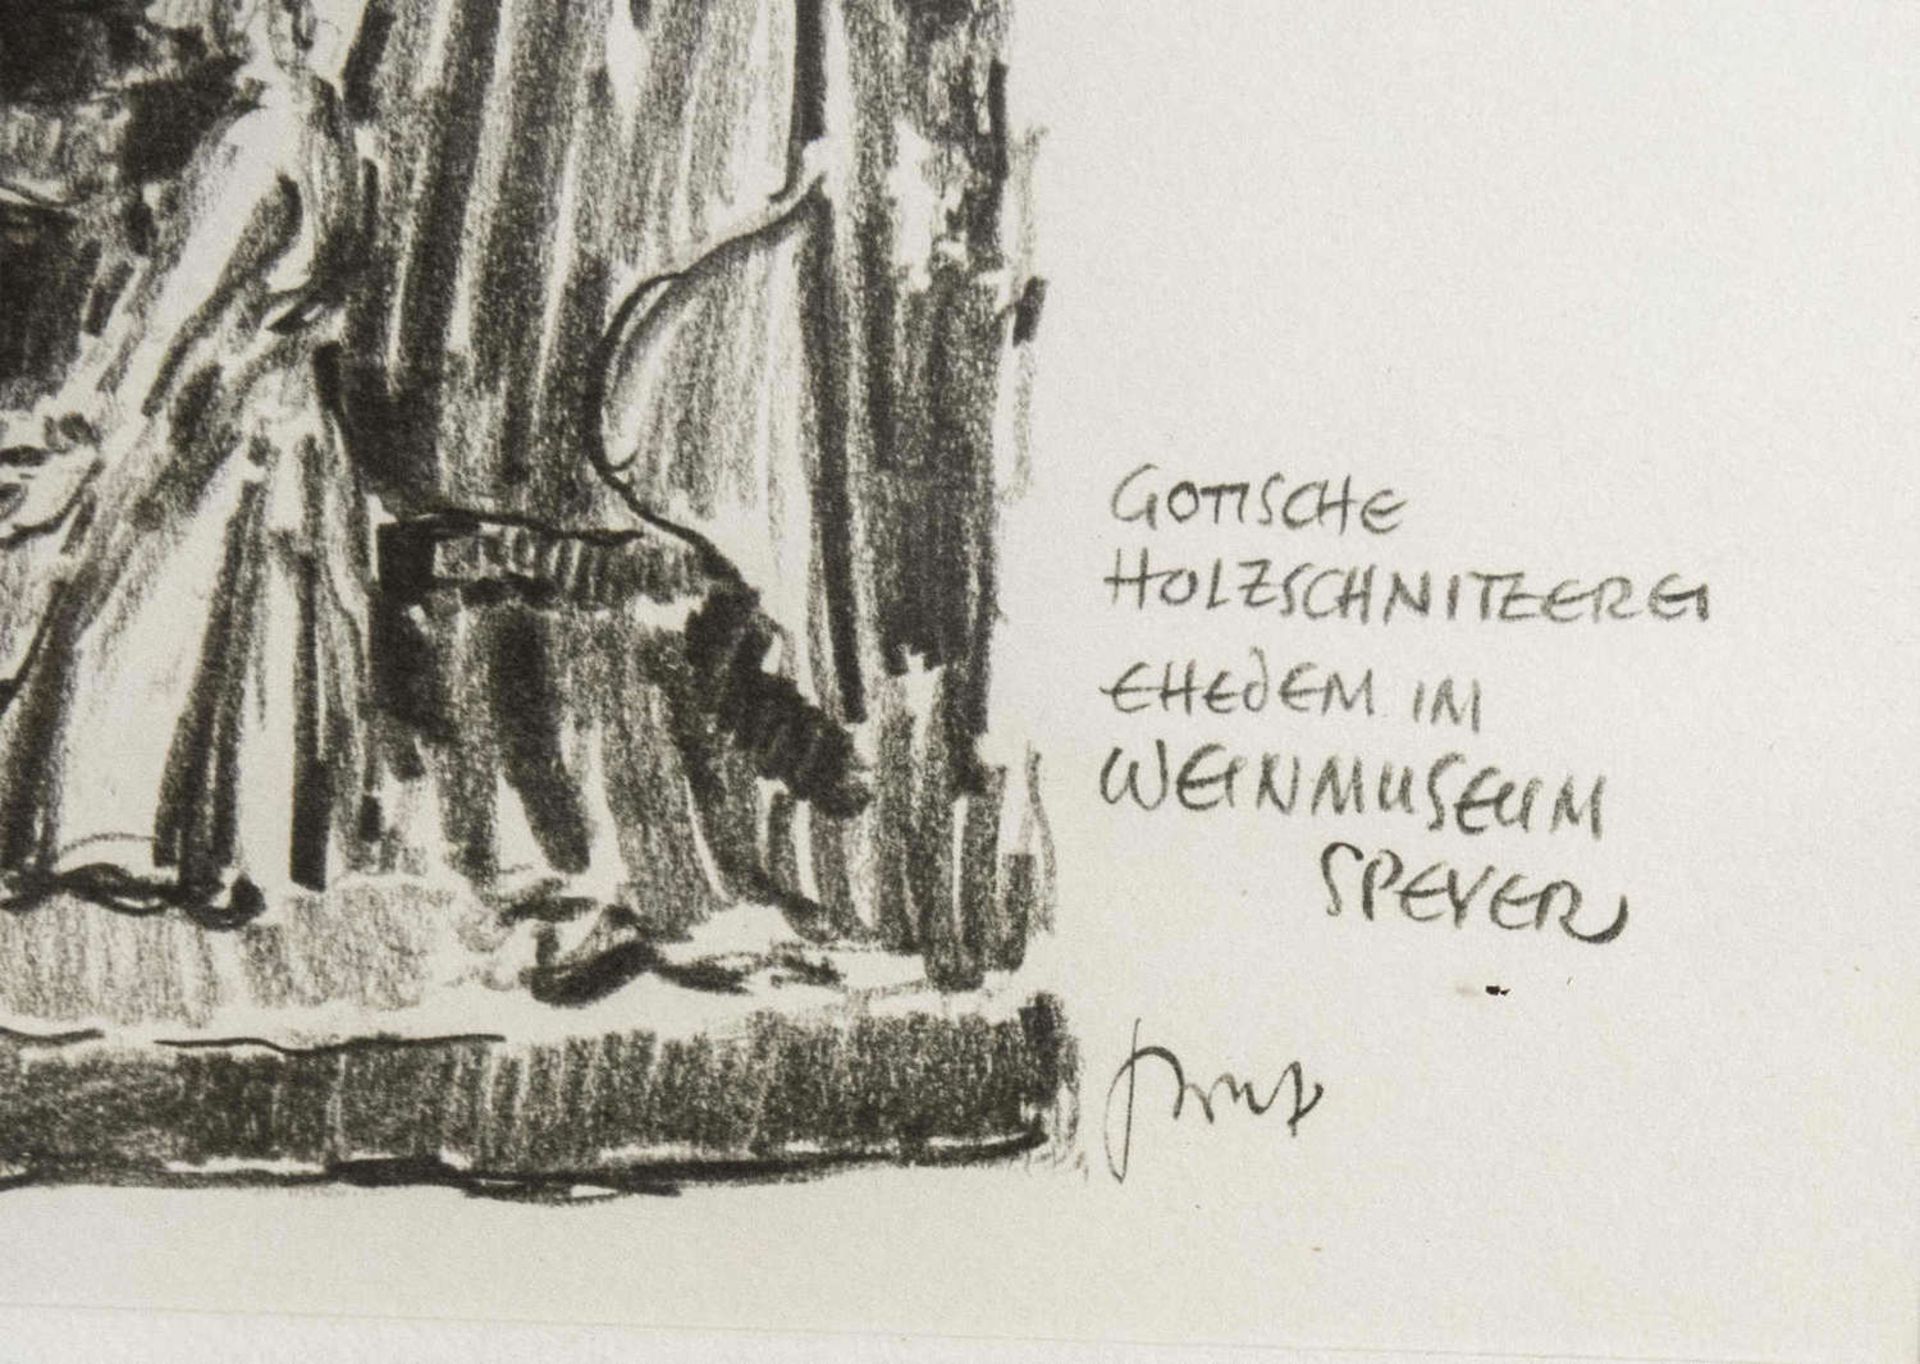 GOTISCHE
HOLZSCHNITZEREI
EHEDEM IM
WEINMUSEUM
SPEYER